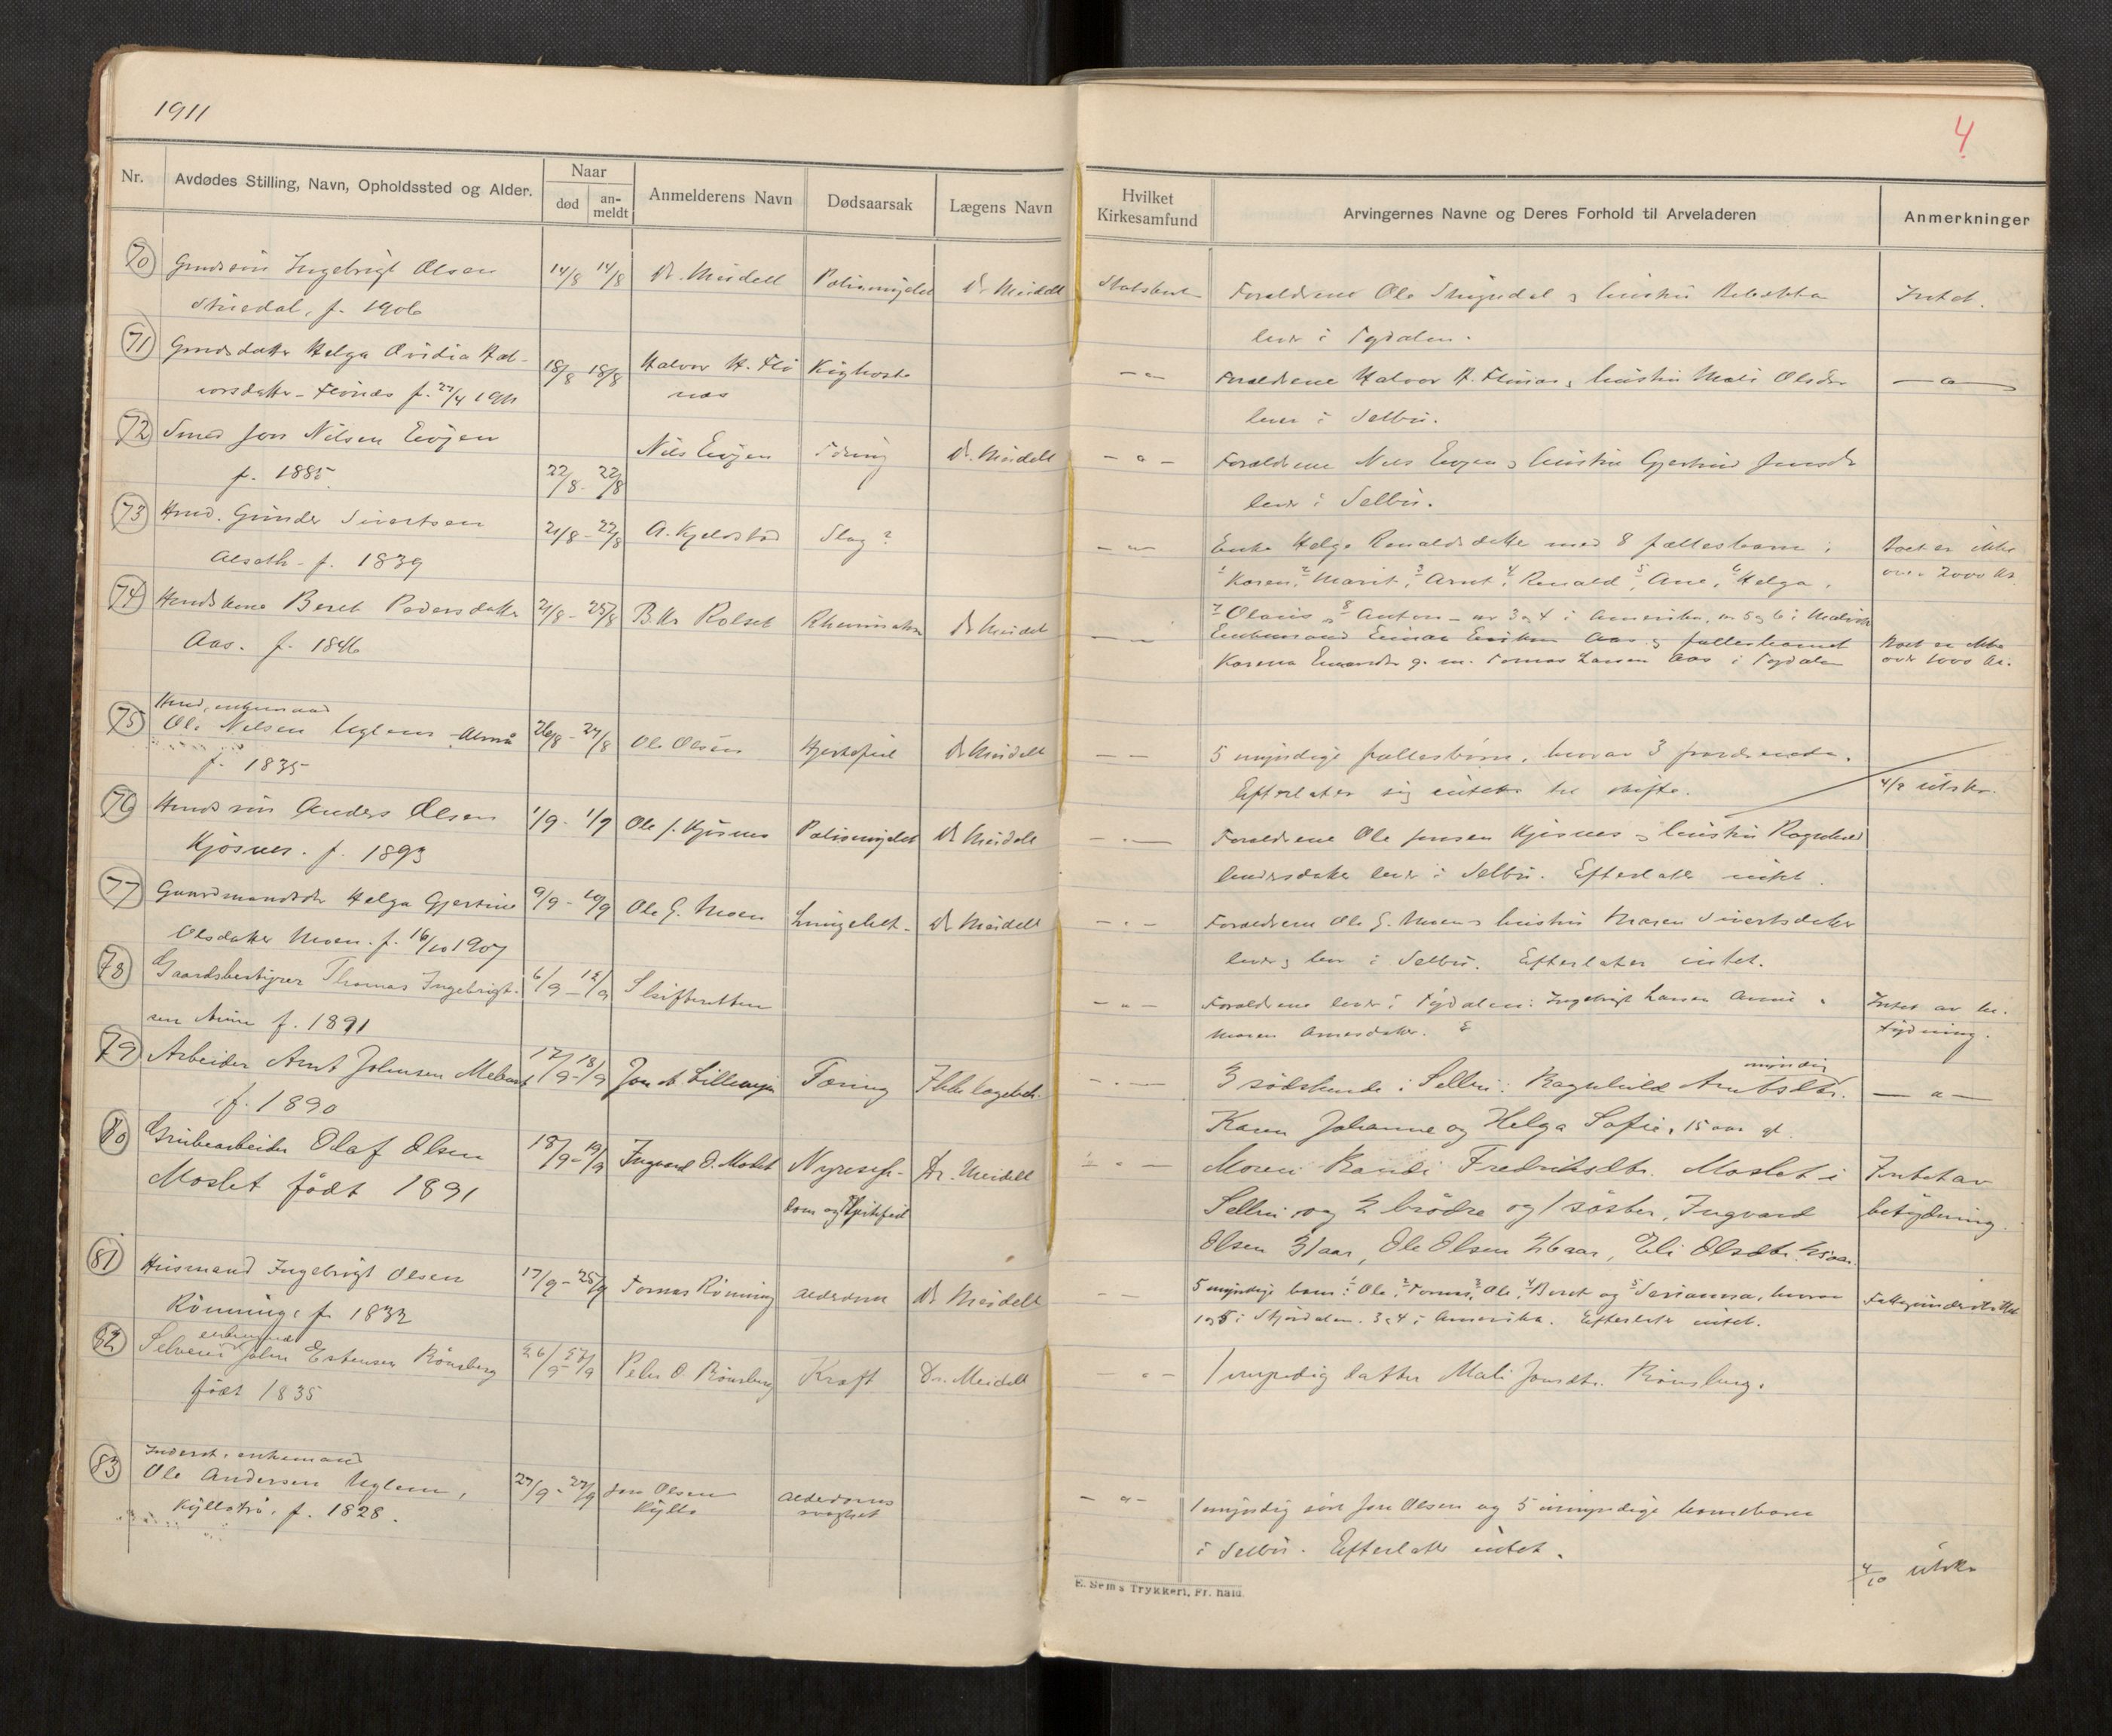 1911
4
Nr.
Avdødes Stilling, Navn, Opholdssted og Alder.
Naar
død
an-
meldt
Anmelderens Navn
Dødsaarsak
Lægens Navn
Hvilket
Kirkesamfund
Arvingernes Navne og Deres Forhold til Arveladeren
Anmerkninger
70 Ingebrigt Olsen 14/8 14/8 Dr. Meidell Dr. Meidell Forældrene Ole hustru Intet.
f. 1906 lever i Tydalen.
71 Helga Ovidia Hal- 18/8 18/8 Halvor H. Flö Kighoste — " — Forældrene Halvor H. Flönæs, hustru Mali Olsdr — " —
vorsdatter Flönæs f. 27/4 1911 næs lever i Selbu.
72 Smed Jon Nilsen Evjen Nils Evjen Tæring Dr. Meidell — " — Forældrene Nils Evjen & hustru Gjertrud Jonsdr
f. 1885 22/8 - 22/8 lever i Selbu.
73 Hmd. Gunder Sivertsen 21/8 - 22/8 A. Kjelstad Slag? — " — Enke Helga Renaldsdatter med 8 fællesbarn: Boet er ikke
Alseth. f. 1839 1 Karen, 2 Marit, 3 Arnt, 4 Renald, 5 Ane, 6 Helga, over 2000 Kr
74 Beret Pedersdatter 21/8 - 25/8 Rolset Dr Meidell 7 Olaus, 8 Anton - nr 3 og 4 i Amerika, nr 5 og 6 i Malvik
Aas. f. 1846 — — Enkemand Einar Aas & fællesbarnet Boet er ikke
Karena g. m. Tomas Larsen Aas i Tydalen over 1000 Kr.
75 Hmd, enkemand
Ole Nilsen Uglem 26/8 - 27/8 Ole Olsen Hjertefeil Dr Meidell — — 5 myndige fællesbörn, hvorav 3 fraværende.
f. 1835 Efterlater sig intet til skifte. 4/9 utskr.
76 Anders Olsen 1/9 - 1/9 Ole J. Kjösnes Dr Meidell — " — Forældrene Ole Jensen Kjösnes & hustru Ragnhild
Kjösnes. f. 1893 lever i Selbu. Efterlater intet.
77 Gaardmandsdtr Helga Gjertine 9/9 - 10/9 Ole G. Moen Dr Meidell — " — Forældrene Ole G. Moen & hustru Maren Sivertsdatter
Olsdatter Moen. f. 16/10 1907 i Selbu. Efterlater intet.
78 Gaardsbestyrer Thomas Ingebrigt- 6/9 - 12/9 Skifteretten — " — Forældrene lever i Tydalen: Ingebrigt Larsen Aune & Intet av be-
sen Aune f. 1891 Maren Arnesdatter. tydning.
79 Arbeider Arnt Johnsen 17/9 - 18/9 Jon Tæring Ikke lægebeh. — " — 3 södskende i Selbu: Ragnhild Arntsdtr. myndig — " —
f. 1890 Karen Johanne og Helga Sofie, 15 aar gl.
80 Grubearbeider Olaf Olsen 18/9 - 19/9 Ingvard O. Moslet Nyresyk- Dr. Meidell — " — Moren Randi Fredriksdtr. Moslet i Intet av
Moslet födt 1891 dom og Hjertefeil Selbu og 2 brödre og 1 söster, Ingvard betydning.
Olsen 31 aar, Ole Olsen 26 aar, Eli Olsdtr. 25 aar.
81 Husmand Ingebrigt Olsen 17/9 - 25/9 Tomas Rönning Alderdom Dr Meidell — — 5 myndige barn: 1 Ole, 2 Tomas, 3 Ole, 4 Beret og 5 Serianna, hvorav Fattigunderstöttet
Rönning, f. 1832 1 og 5 i Stjördalen. 3 & 4 i Amerika. Efterlater intet.
82 Selveier enkemand John Estensen Rönsberg 26/9 - 27/9 Peder O. Rönsberg Kræft Dr. Meidell — " — 1 myndig datter Mali Jonsdtr. Rönsberg.
født 1835
83 Inderst, enkemand
Ole Andersen Uglem, 27/9 - 27/9 Jon Olsen Alderdoms — " — 1 myndig sön Jon Olsen og 5 umyndige barnebarn
Kyllotrö, f. 1828. Kyllo svaghet i Selbu. Efterlater intet.
4/10 utskr
E. Sem's Trykkeri, Fr.hald.